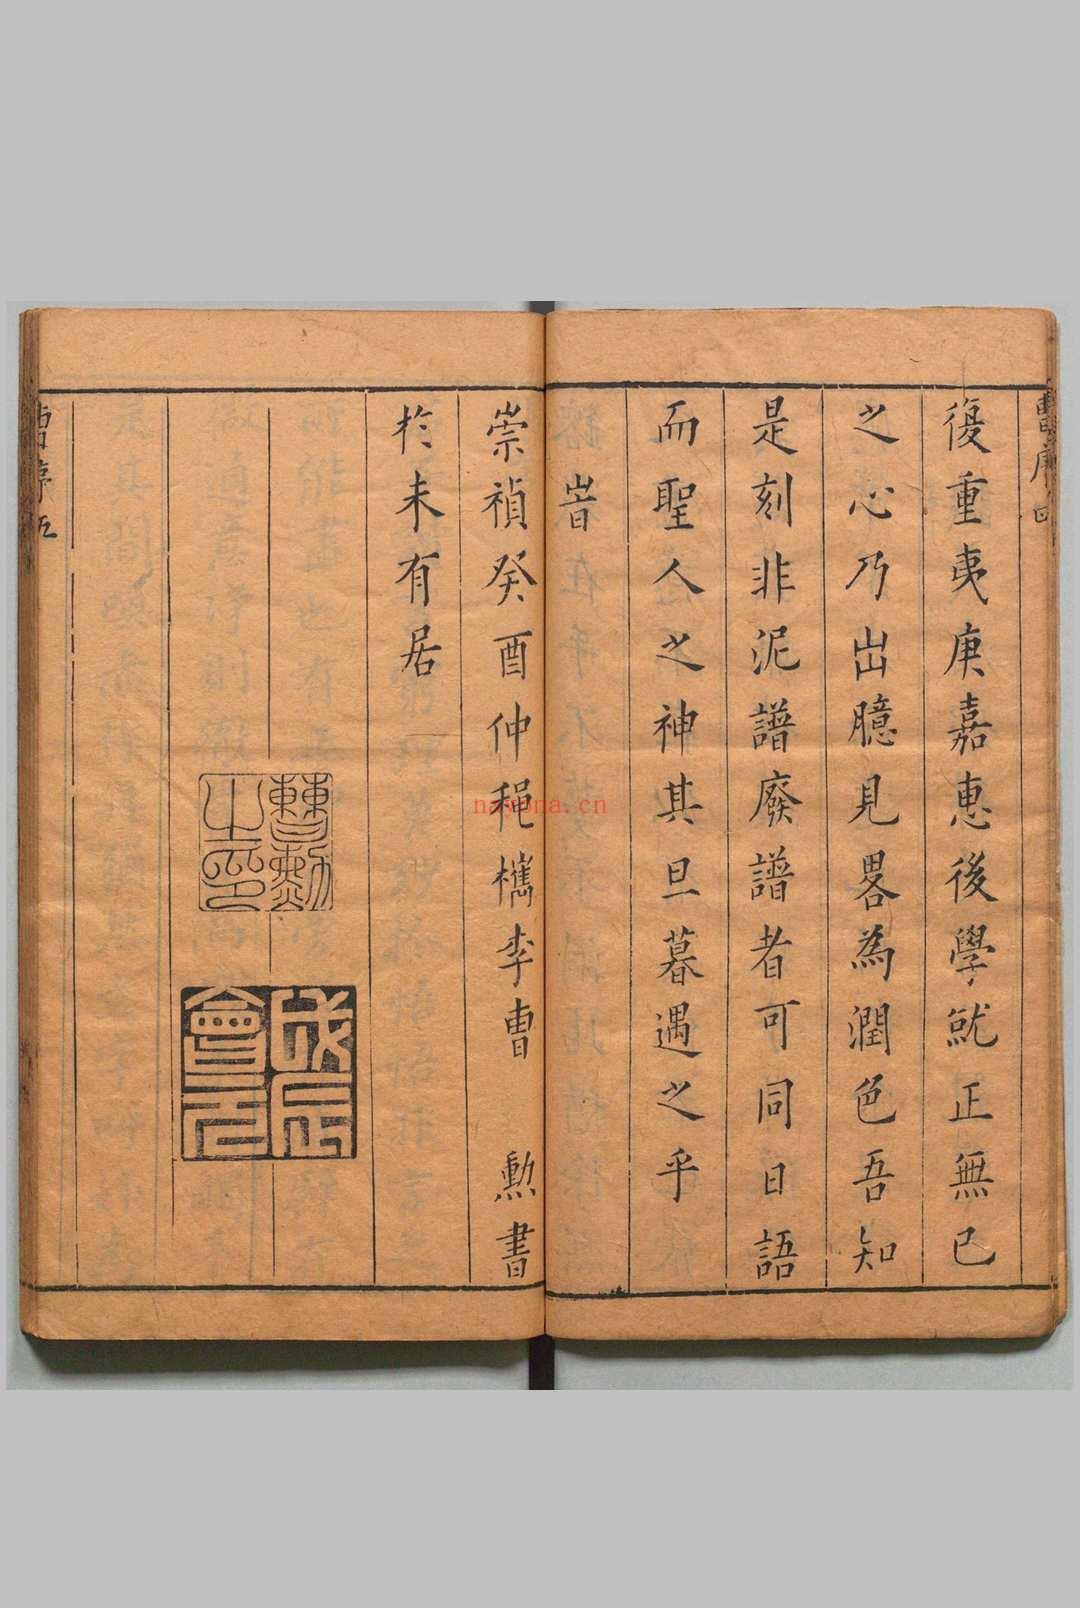 曹序四
復重夷庚嘉惠後學就正無已
之心乃出臆見畧為潤色吾知
是刻非泥譜廢譜者可同日語
而聖人之神其旦暮遇之乎
旹
崇禎癸酉仲穐檇李曹勳書
於未有居
曹勳之印
戊辰會元
曹序五
nayona.cn